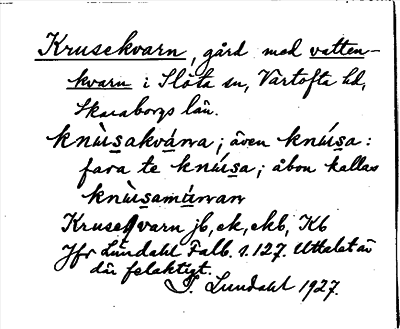 Krusekvarn, gård med vatten-
kvarn i Slöta sn, Vartofta hd,
Skaraborgs län.
knùsakvárna; även knúsa:
fara te knúsa; åbon kallas
knùsamárnan
Krusekvarn jb, ek, ekb, Kb
Jfr Lundahl Falb. s. 127. Uttalet är
där felaktigt.
I. Lundahl 1927.